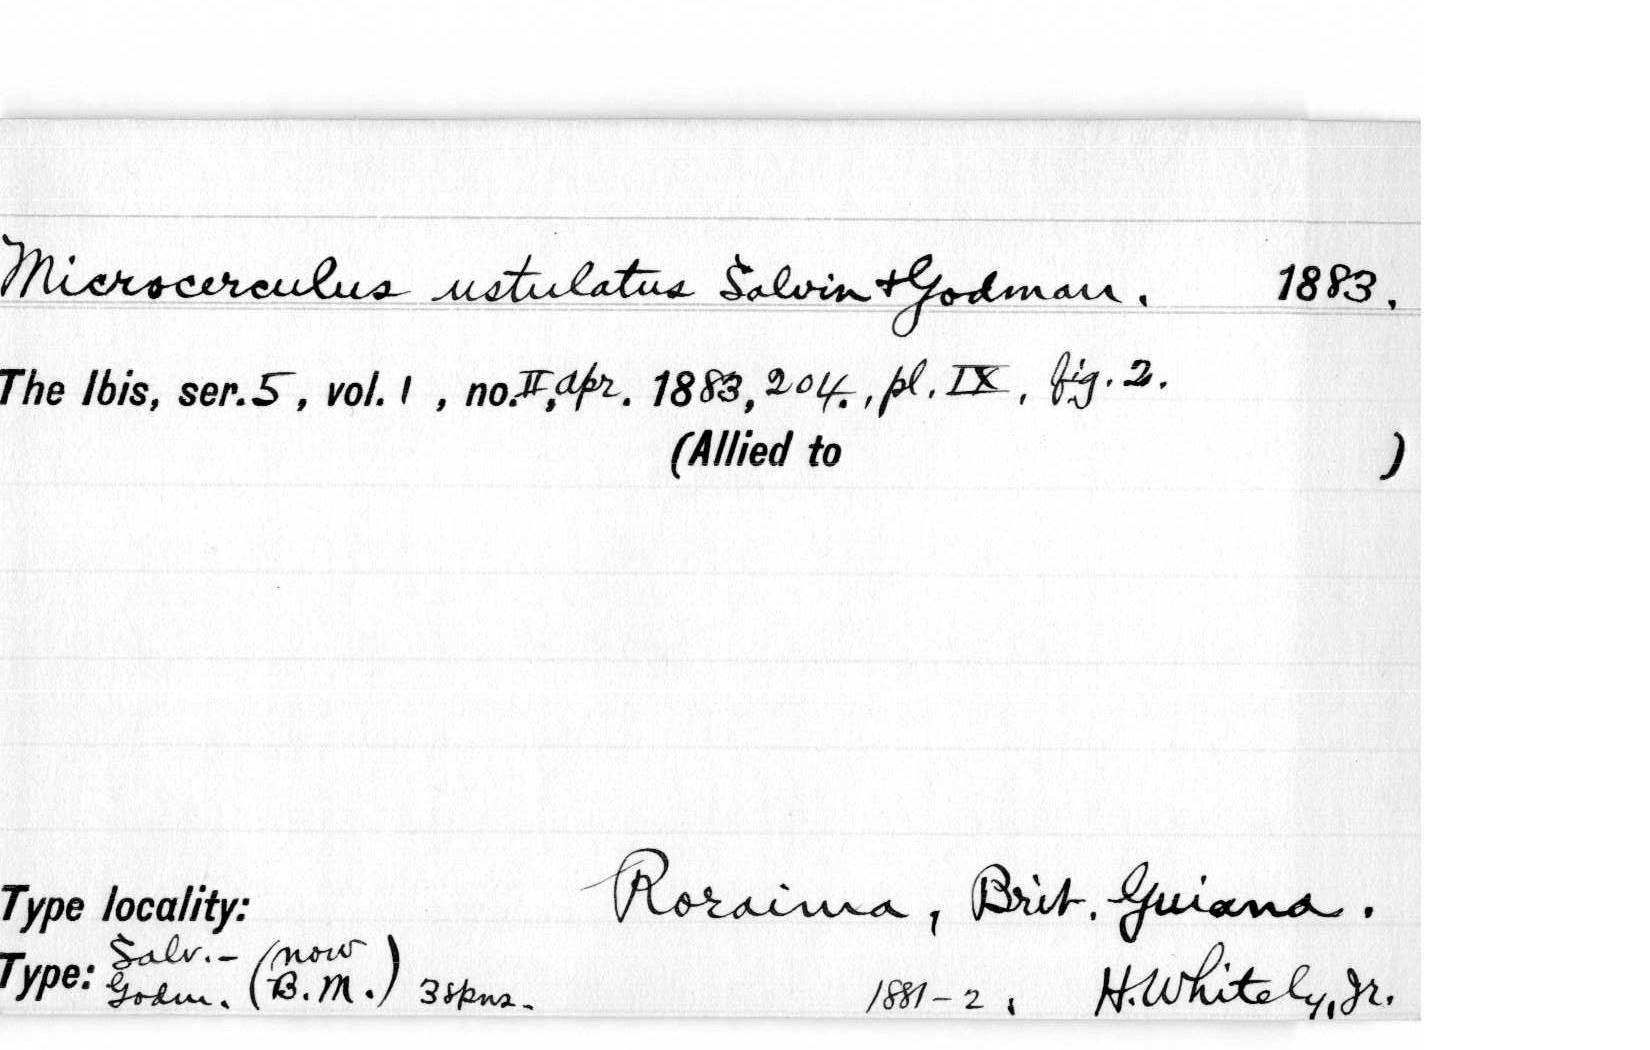 Microcerculus ustulatus Salvin & Godman. 1883.
The Ibis, ser. 5, vol. 1, no. II, Apr. 1883, 204., pl. IX, fig. 2.
(Allied to )
Type locality: Roraima, Brit. Guiana.
Type: Salv.- Godm. (now B.M.) 3 spns. 1881-2. H. Whitely, Jr.